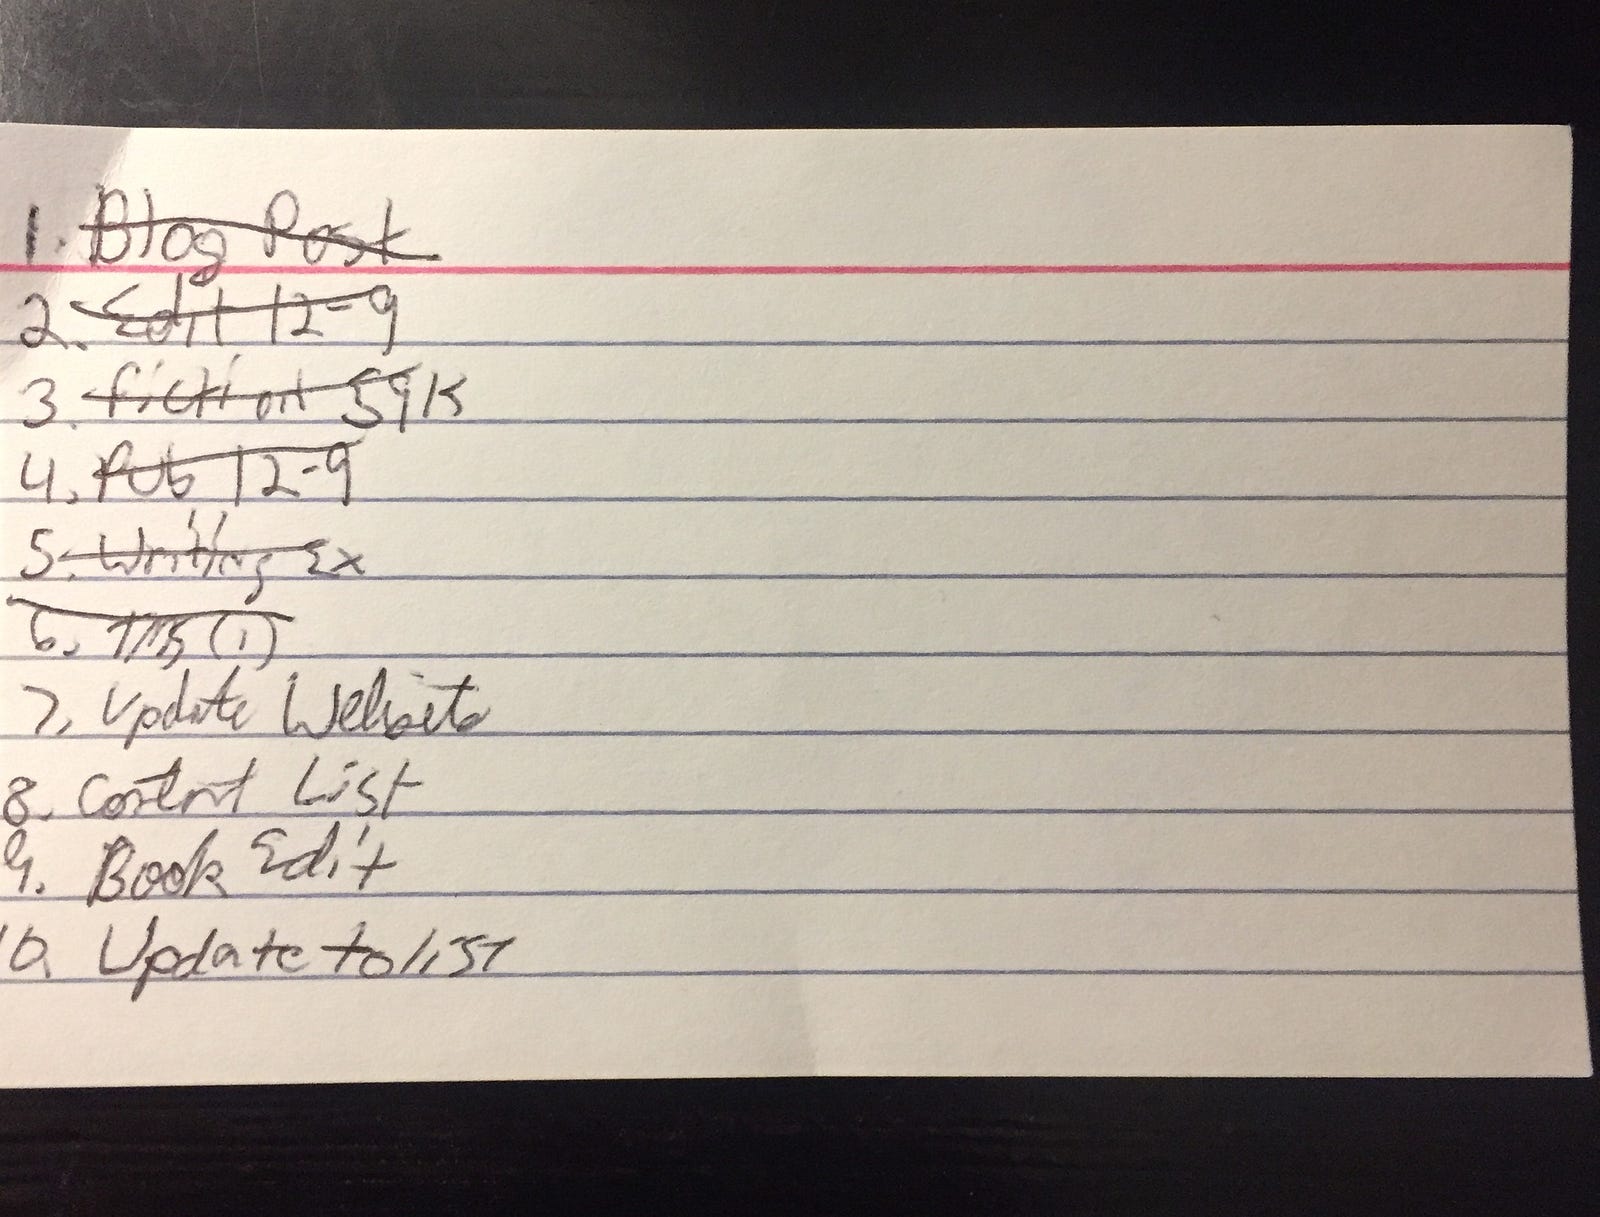 1. Blog Post
2. Edit 12-9
3. fiction 59K
4. Pub 12-9
5. Writing Ex
6. (1)
7. Update Website
8. Content List
9. Book Edit
10. Update to list